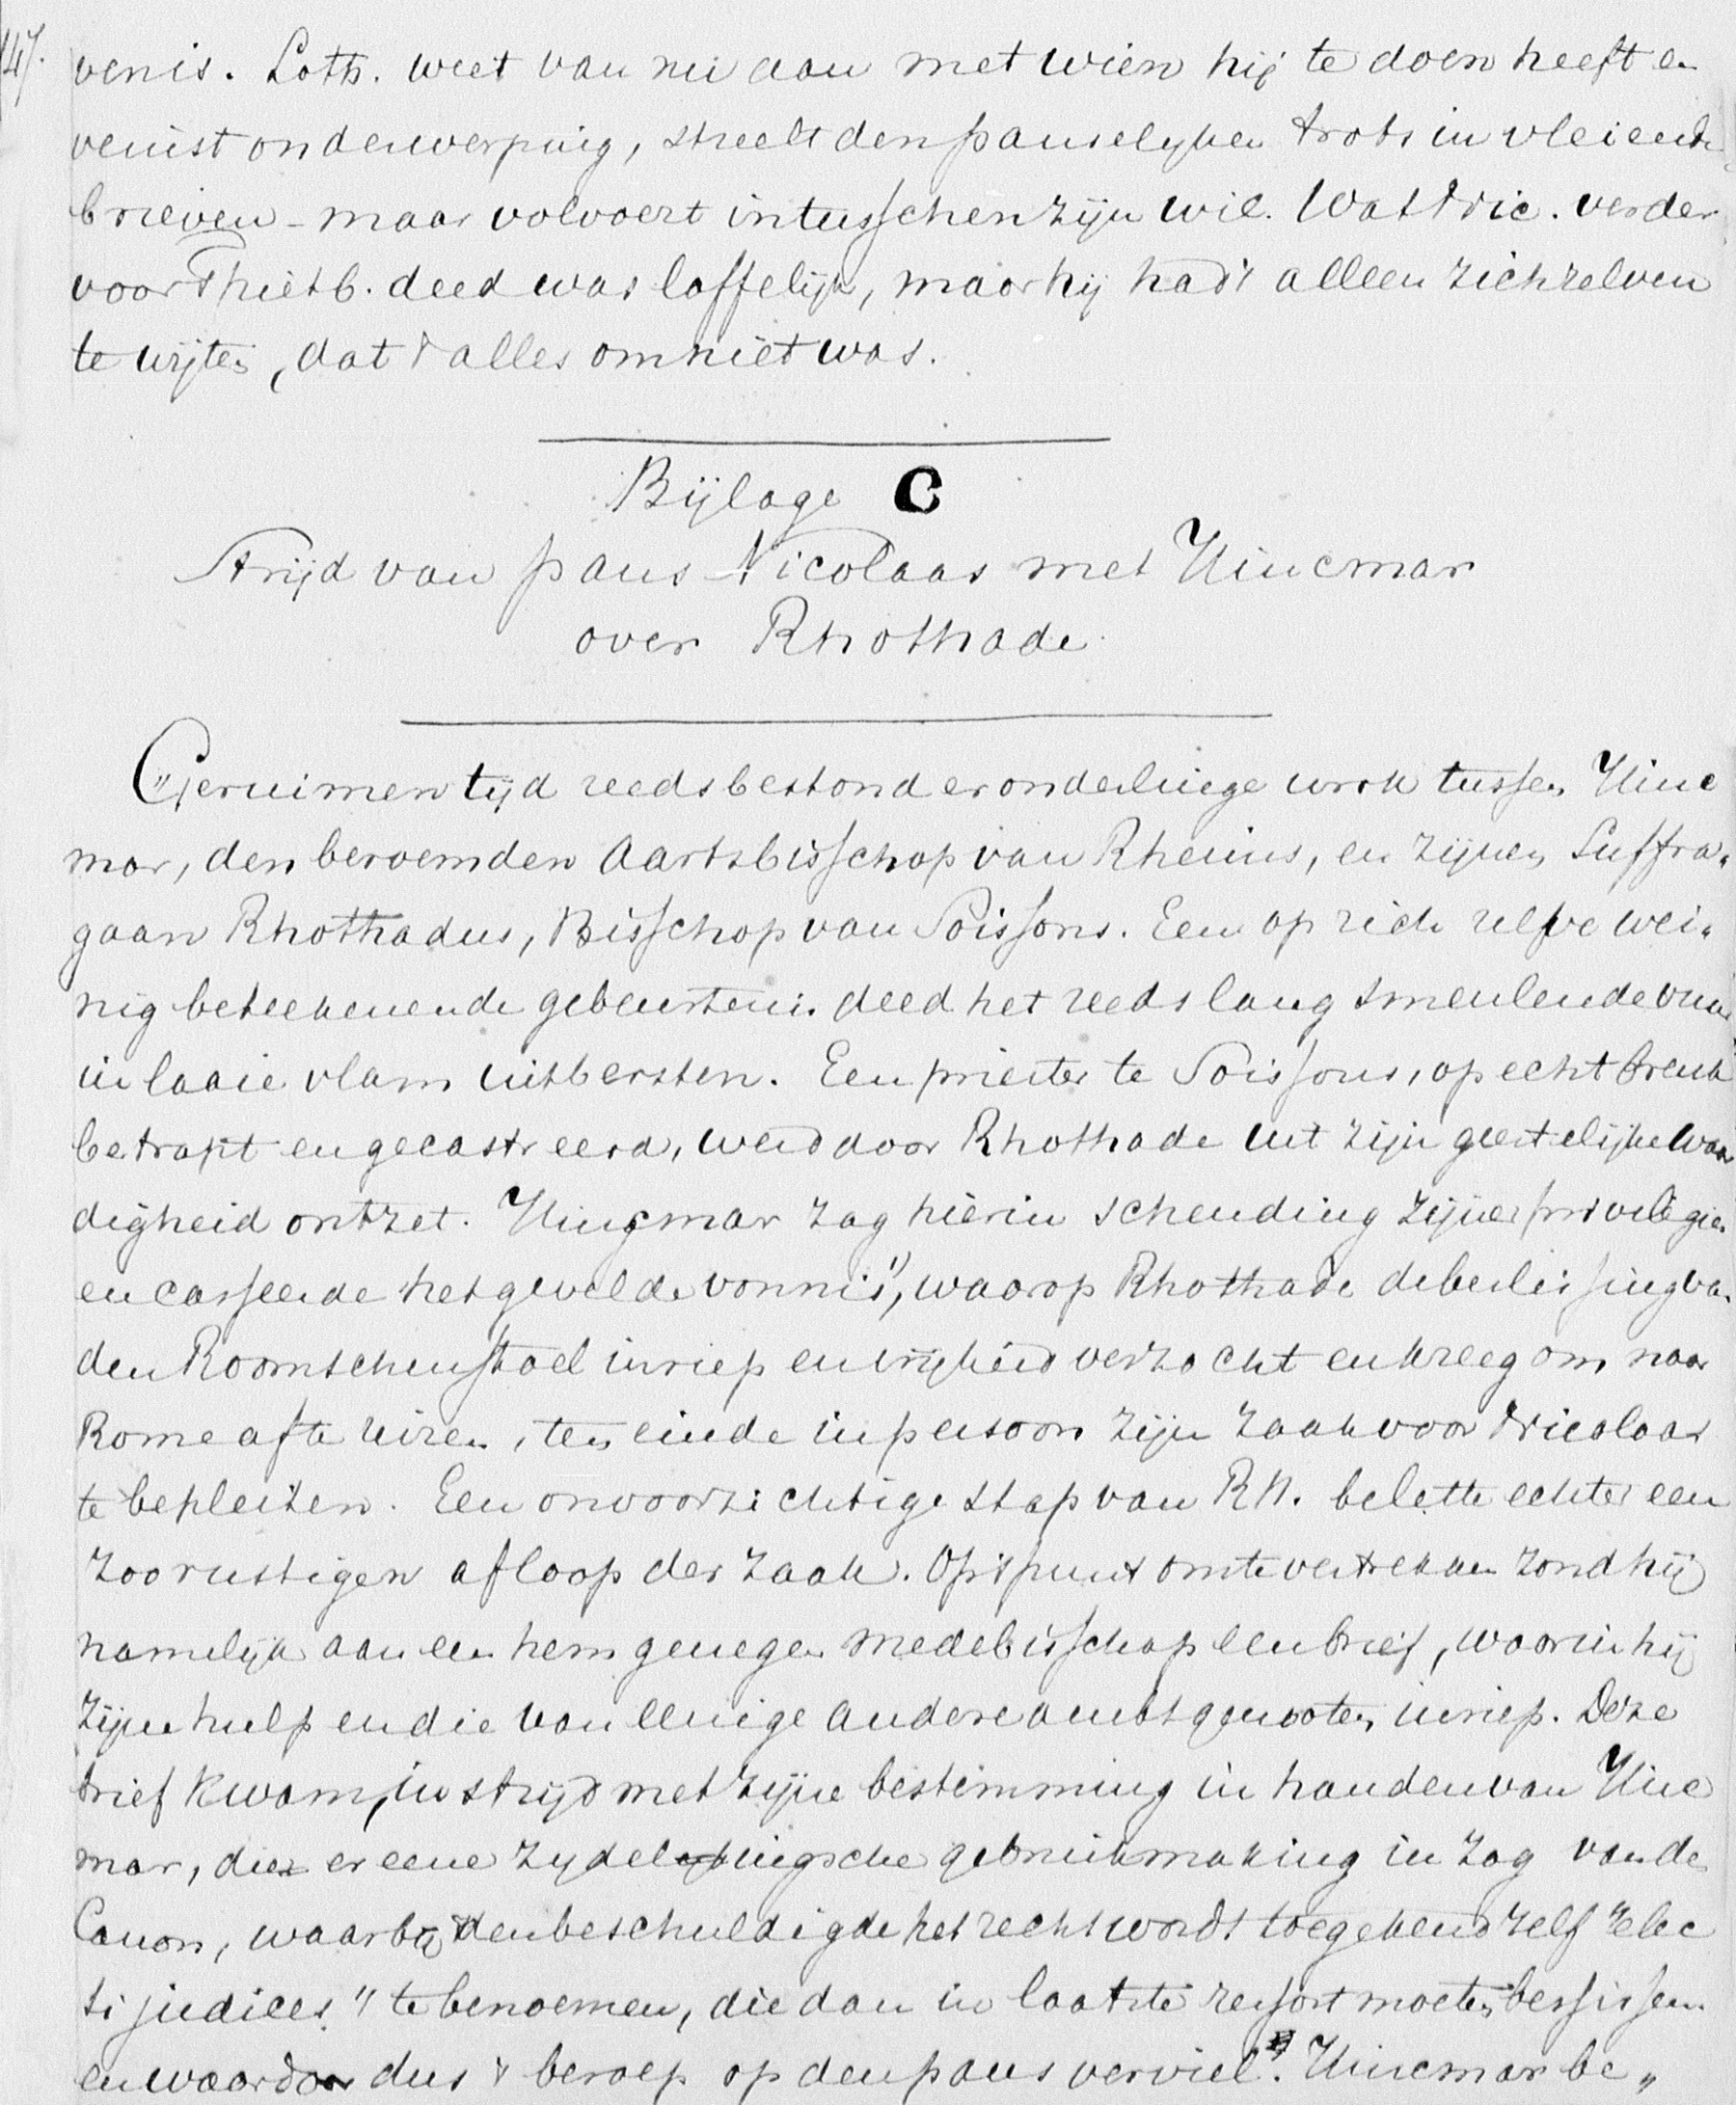 147.
venis. Loth. weet van nu aan met wien hij te doen heeft en
veinst onderwerping, streelt den pauselyken trots in vleiende
brieven - maar volvoert intusschen zijn wil. Wat Nic. verder
voor Thietb. deed was loffelijk, maar hij had 't alleen zichzelven
te wijten, dat 't alles om niet was.
Bijlage C
Strijd van paus Nicolaas met Hincmar
over Rhothade
Geruimen tijd reeds bestond er onderlinge wrok tussen Hinc
mar, den beroemden Aartsbisschop van Rheims, en zijnen Suffra„
gaan Rhothadus, Bisschop van Soissons. Een op zich zelve wei„
nig beteekenende gebeurtenis deed het reeds lang smeulende vuur
in laaie vlam uitbersten. Een priester te Soissons, op echtbreuk
betrapt en gecastreerd, werd door Rhothade uit zijn geestelijke waar
digheid ontzet. Hincmar zag hierin schending zijner privilegien
en casseerde het gevelde vonnis 1), waarop Rhothade de beslissing van
den Roomschen stoel inriep en vrijheid verzocht en kreeg om naar
Rome af te reizen, ten einde in persoon zijn zaak voor Nicolaas
te bepleiten. Een onvoorzichtige stap van Rh. belette echter een
zoo rustigen afloop der zaak. Op 't punt om te vertrekken zond hij
namelijk aan een hem genegen medebisschop een brief, waarin hij
zijne hulp en die van eenige andere ambtgenooten inriep. Deze
brief kwam, in strijd met zijne bestemming in handen van Hinc
mar, die er eene zydelingsche gebruikmaking in zag van de
Canon, waarbij den beschuldigde het recht wordt toegekend zelf "elec
ti judices" te benoemen, die dan in laatste ressort moeten beslissen
en waardoor dus 't beroep op den paus verviel. Hincmar be„